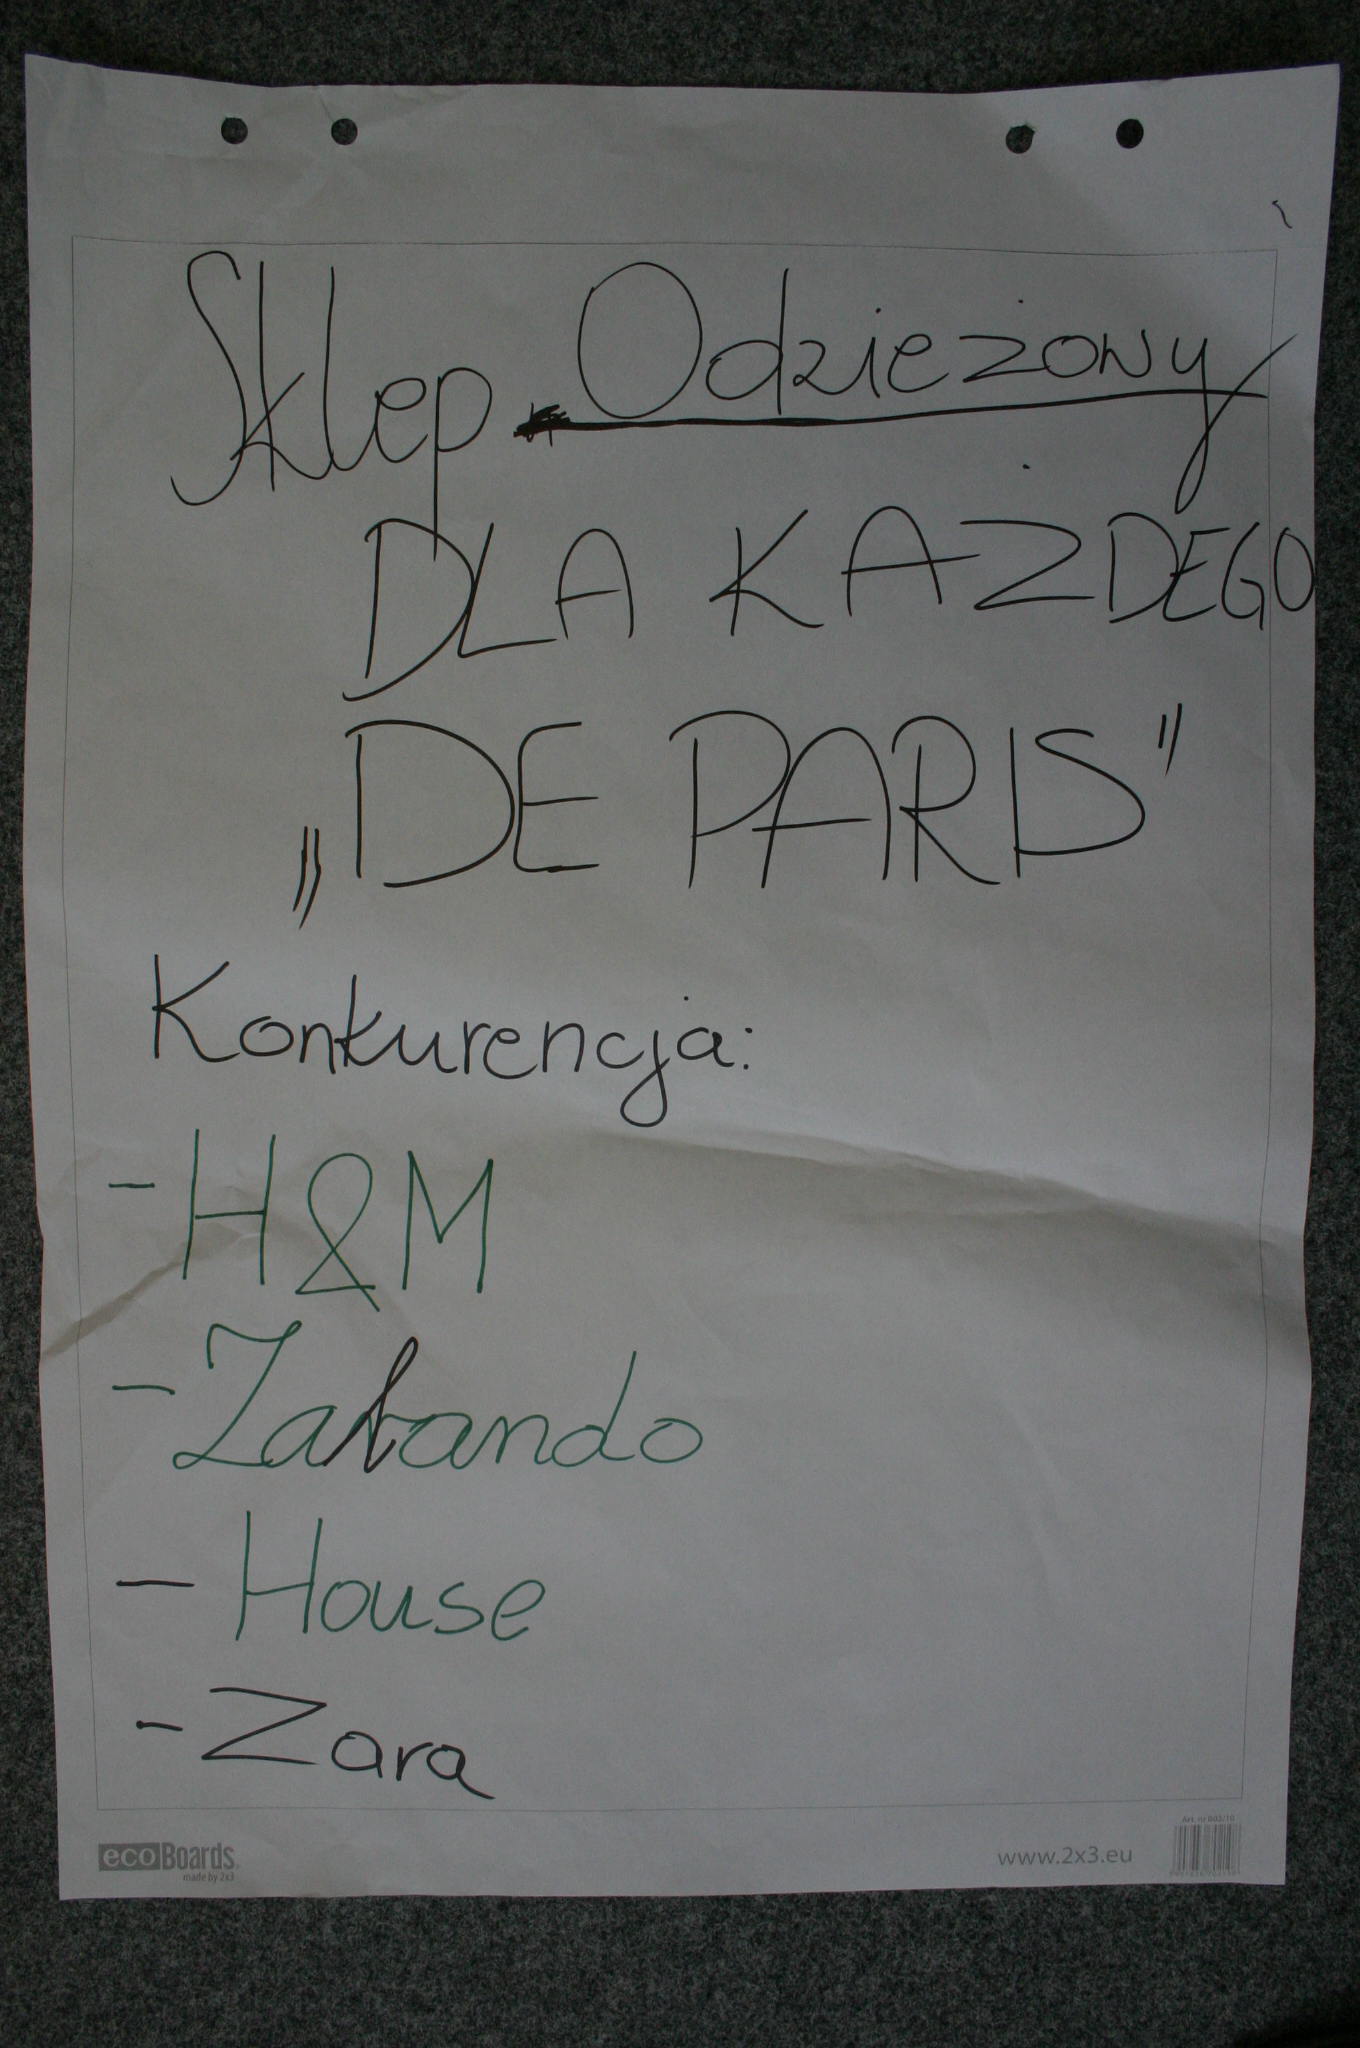 Sklep Odzieżowy
DLA KAŻDEGO
„DE PARIS”
Konkurencja:
- H&M
- Zalando
- House
- Zara
ecoBoards
made by 2x3
www.2x3.eu